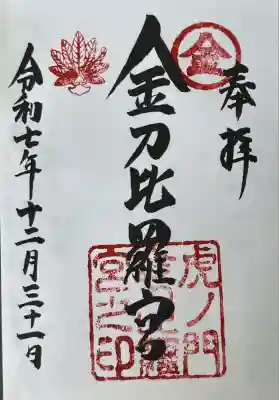 奉拝
金
金刀比羅宮
虎ノ門
金刀比羅
宮之印
令和七年十二月三十一日